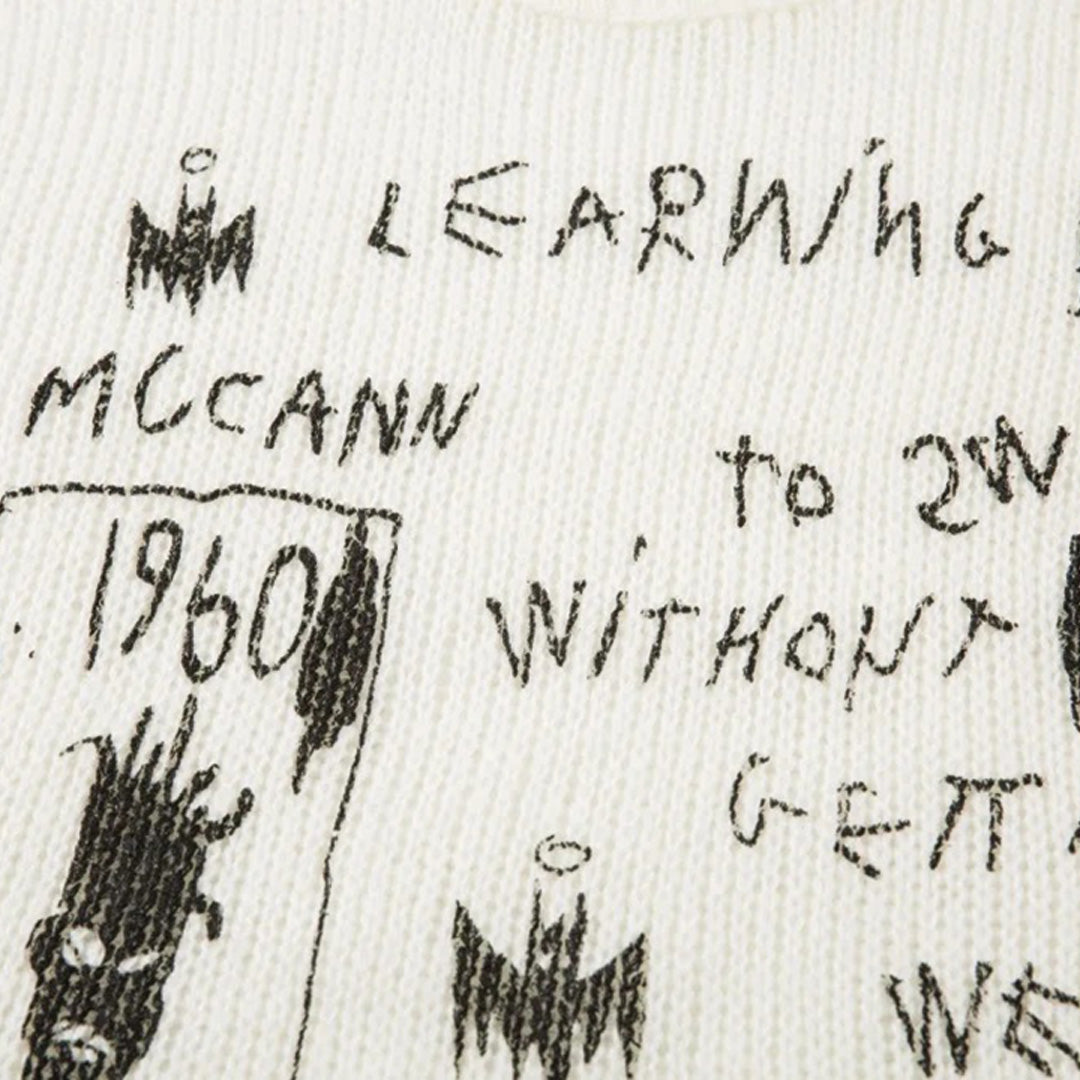 LEARNiNG
MCCANN
TO 2W
1960
WiTHOUT
GETT
WE